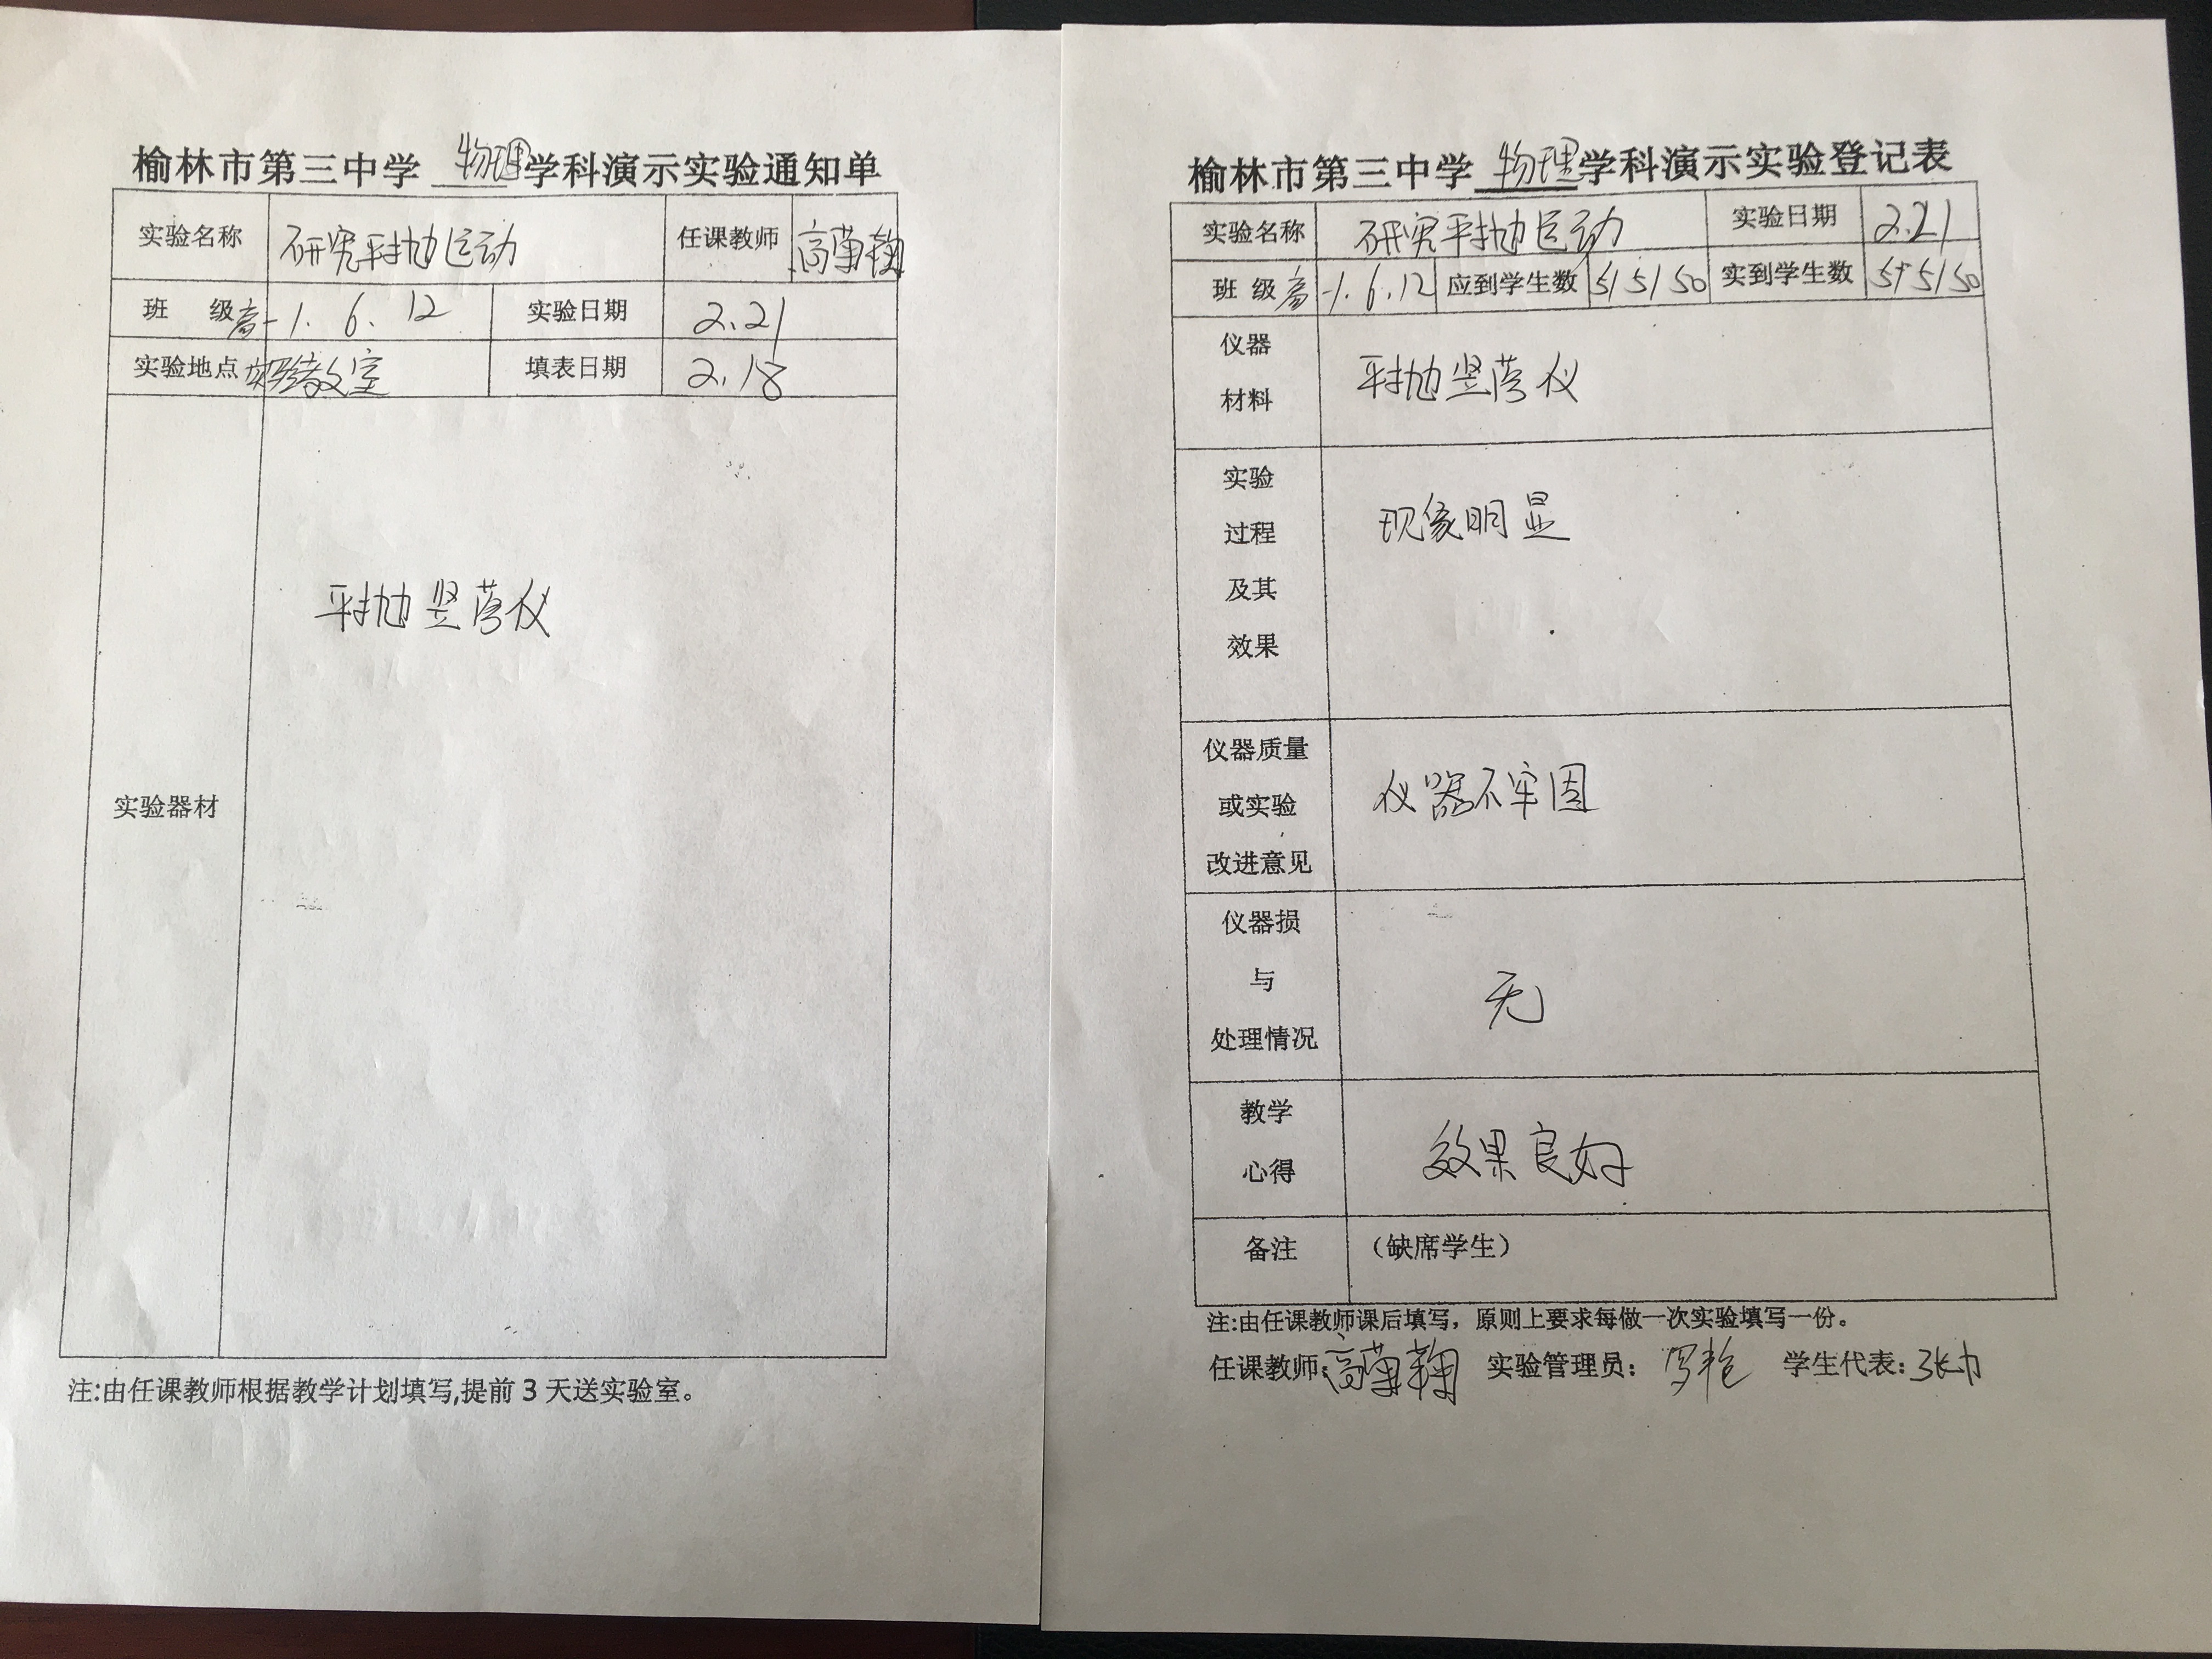 榆林市第三中学 物理 学科演示实验通知单
实验名称 研究平抛运动 任课教师 高菊
班 级 高一1. 6. 12 实验日期 2.21
实验地点 实验教室 填表日期 2.18
实验器材 平抛竖落仪
注:由任课教师根据教学计划填写,提前3天送实验室。
榆林市第三中学 物理 学科演示实验登记表
实验名称 研究平抛运动 实验日期 2.21
班 级 高一1. 6. 12 应到学生数 51 51 50 实到学生数 51 51 50
仪器
材料
平抛竖落仪
实验
过程
及其
效果
现象明显
仪器质量
或实验
改进意见
仪器不牢固
仪器损
与
处理情况
无
教学
心得
效果良好
备注 （缺席学生）
注:由任课教师课后填写，原则上要求每做一次实验填写一份。
任课教师: 高菊 实验管理员: 罗 学生代表: 张力